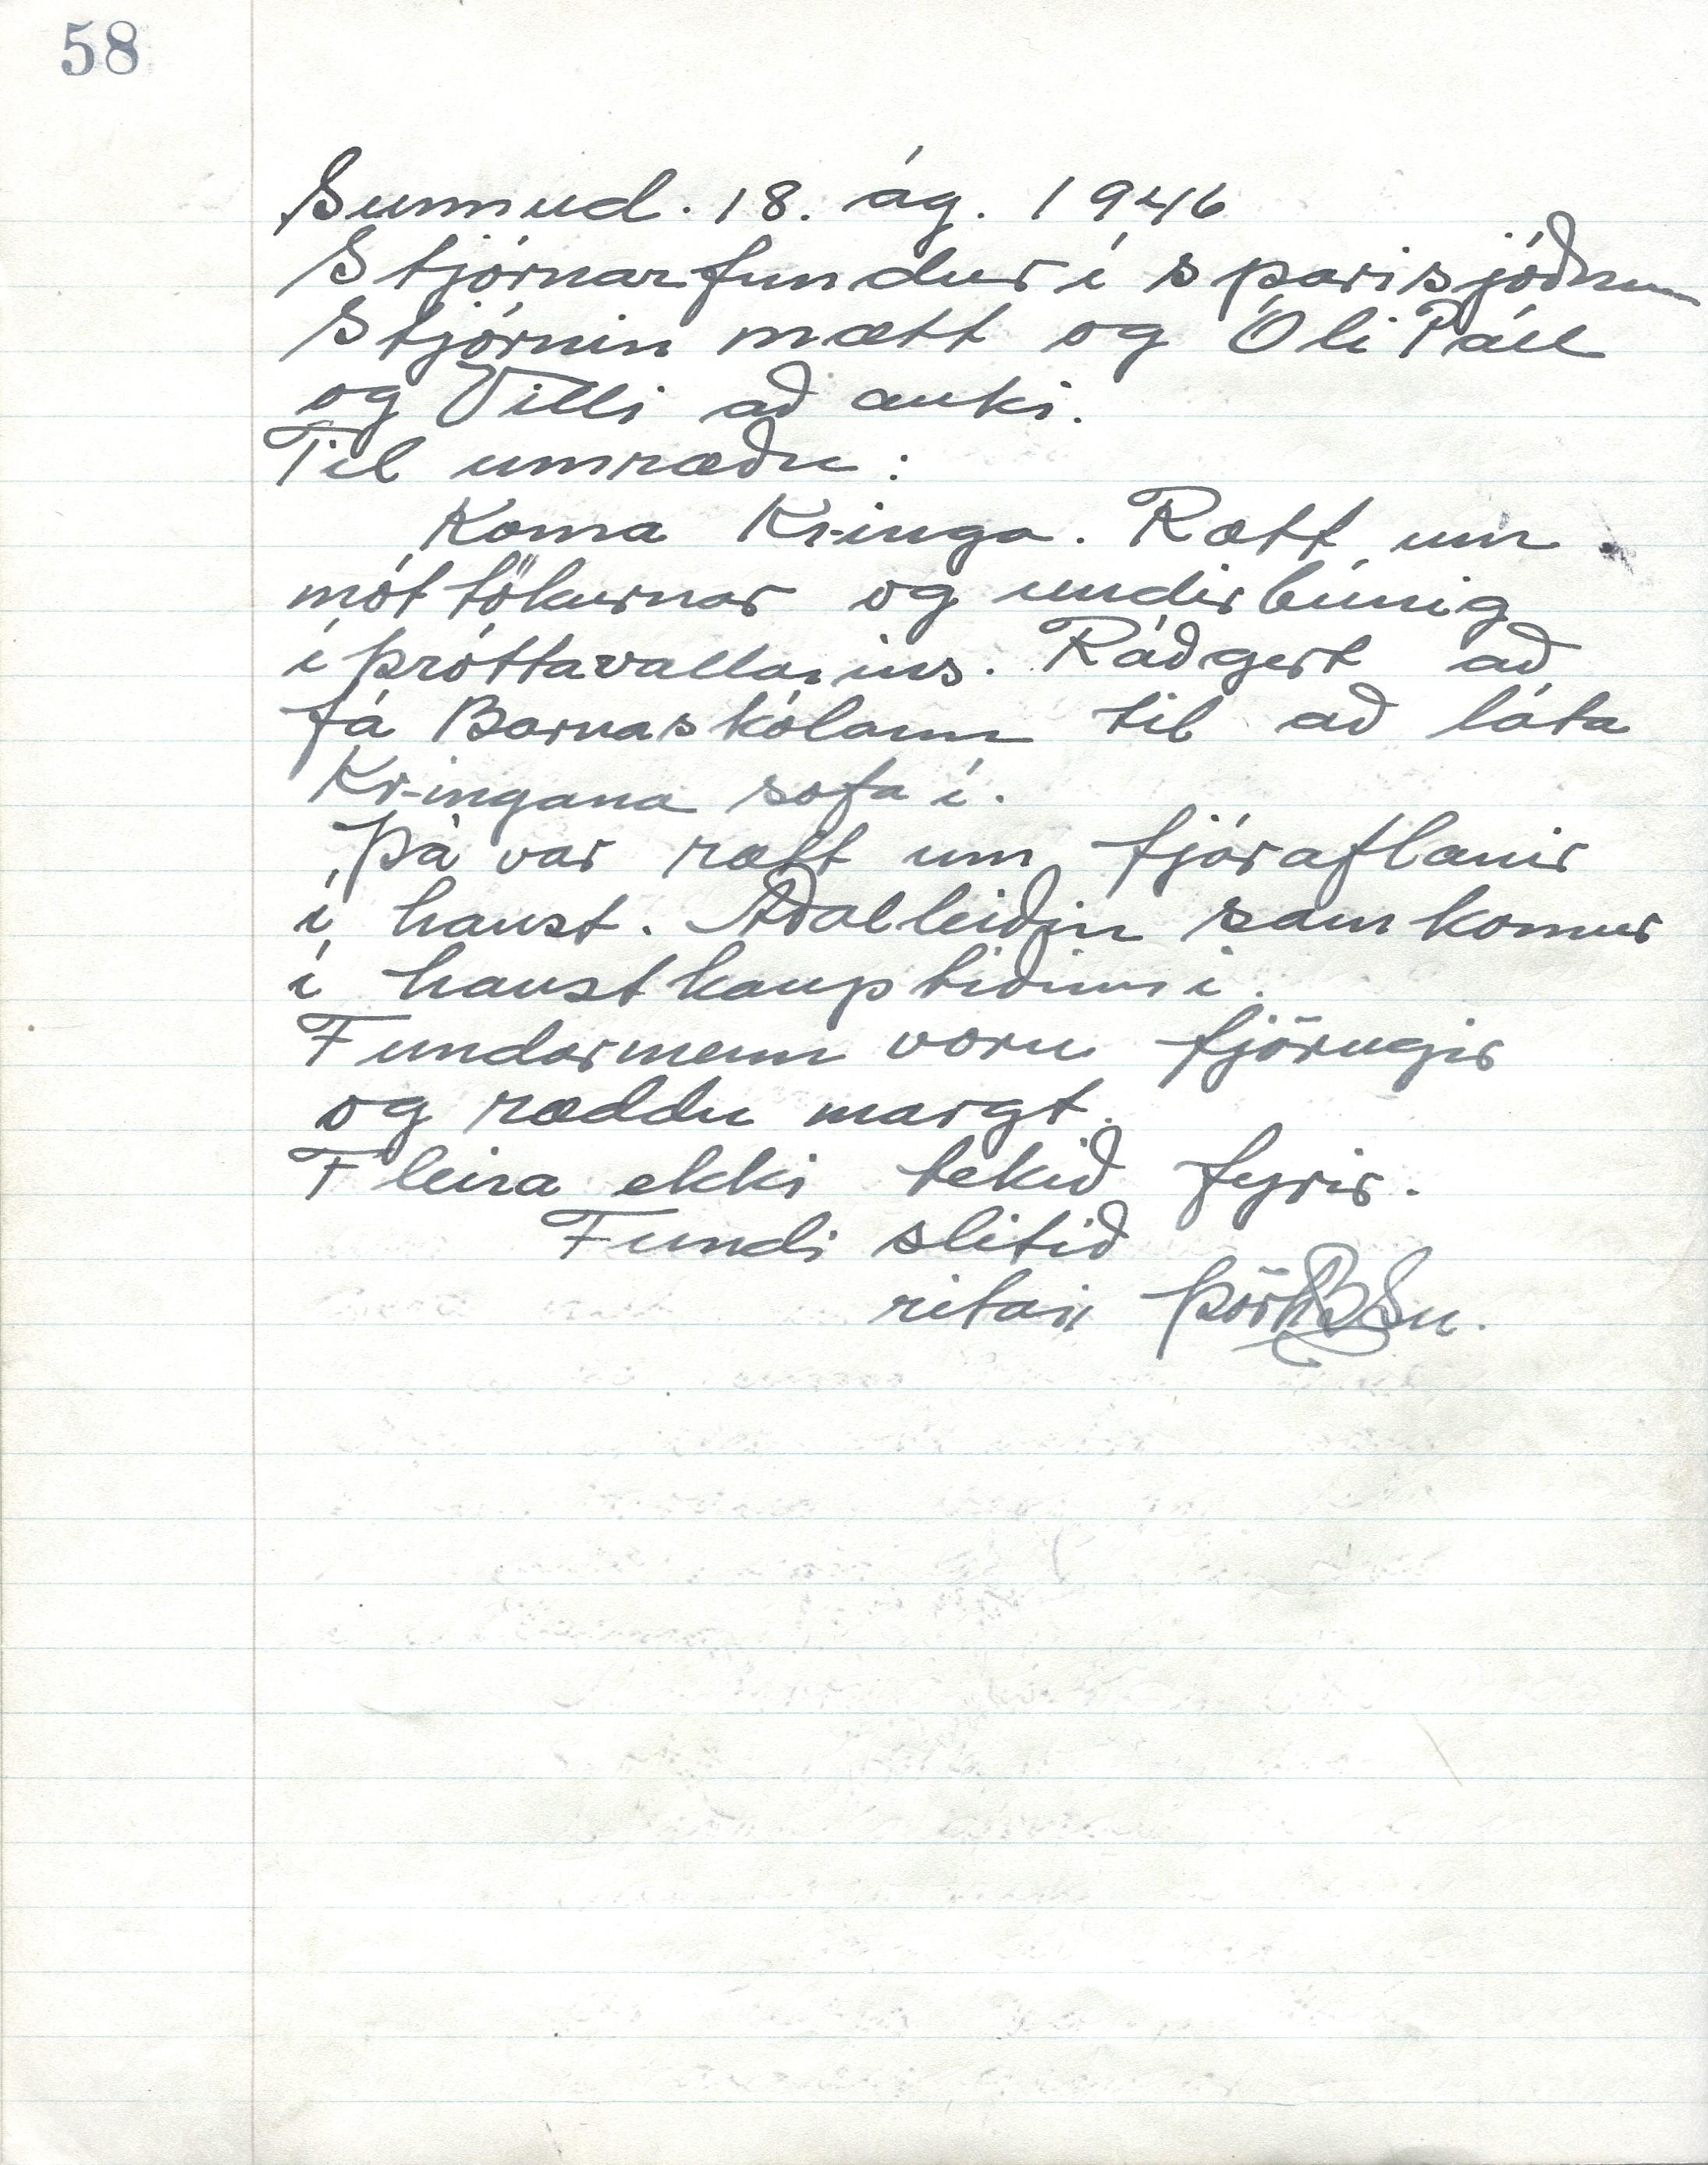 58
Sunnud. 18. ág. 1946
Stjórnarfundur í sparisjóðnum
Stjórnin mætt og Óli Páll
og Villi að auki.
Til umræðu:
Koma Kr-inga. Rætt um
móttökurnar og undirbúnig
íþróttavallarins. Ráðgert að
fá Barnaskólann til að láta
Kr-ingana sofa í.
Þá var rætt um fjáraflanir
í haust. Aðalleiðin samkomur
í haustkauptíðinni.
Fundarmenn voru fjörugir
og ræddu margt.
Fleira ekki tekið fyrir.
Fundi slitið
ritari